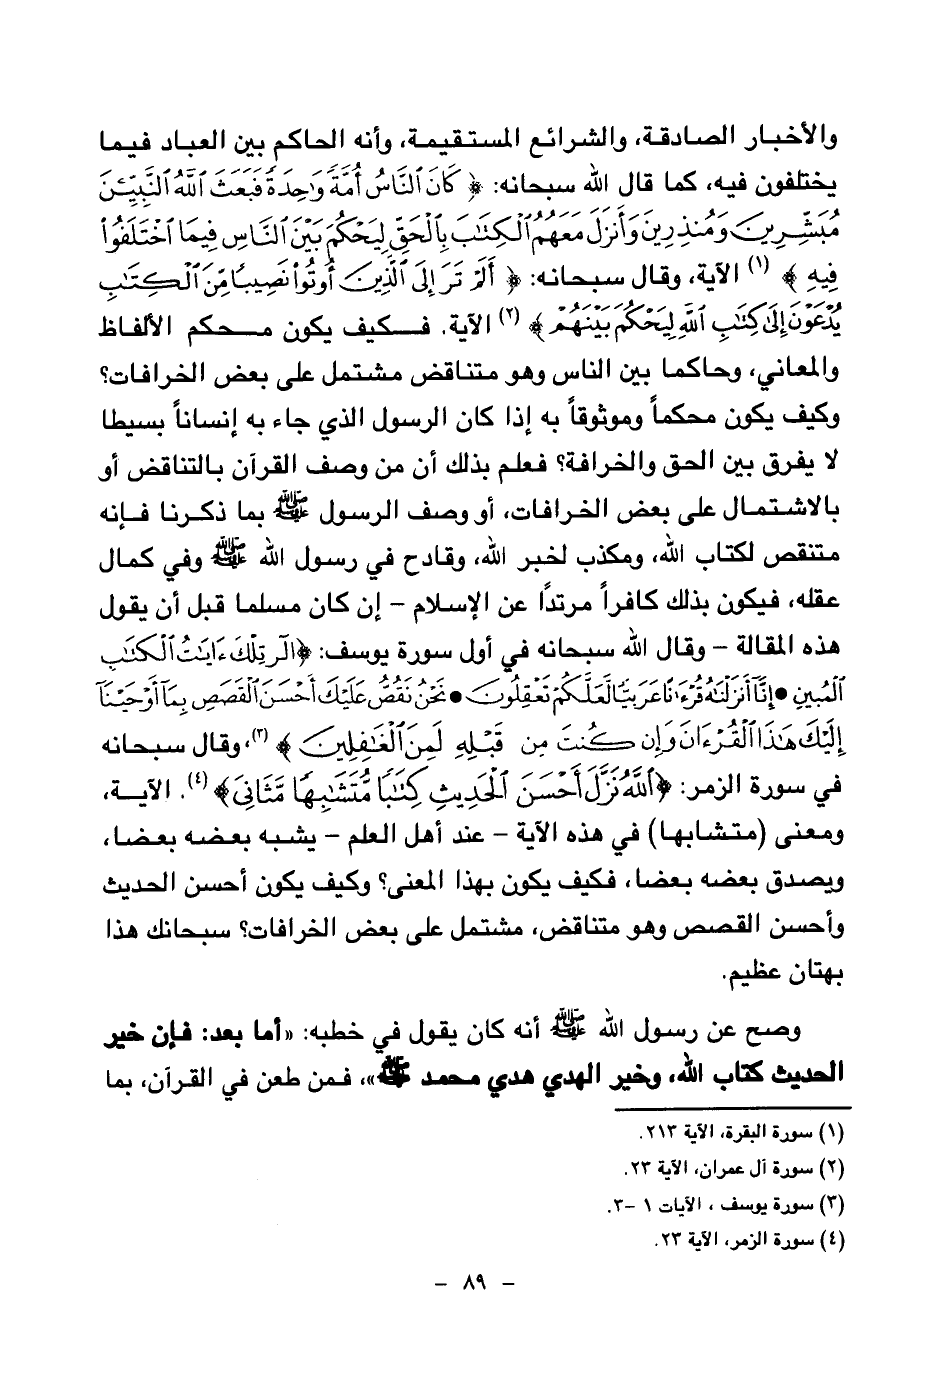 والأخبار الصادقة، والشرائع المستقيمة، وأنه الحاكم بين العباد فيما
يختلفون فيه، كما قال الله سبحانه: ﴿ كَانَ ٱلنَّاسُ أُمَّةً وَٰحِدَةً فَبَعَثَ ٱللَّهُ ٱلنَّبِيِّـۧنَ
مُبَشِّرِينَ وَمُنذِرِينَ وَأَنزَلَ مَعَهُمُ ٱلْكِتَٰبَ بِٱلْحَقِّ لِيَحْكُمَ بَيْنَ ٱلنَّاسِ فِيمَا ٱخْتَلَفُوا۟
فِيهِ ﴾ (١) الآية، وقال سبحانه: ﴿ أَلَمْ تَرَ إِلَى ٱلَّذِينَ أُوتُوا۟ نَصِيبًا مِّنَ ٱلْكِتَٰبِ
يُدْعَوْنَ إِلَىٰ كِتَٰبِ ٱللَّهِ لِيَحْكُمَ بَيْنَهُمْ ﴾ (٢) الآية. فكيف يكون محكم الألفاظ
والمعاني، وحاكما بين الناس وهو متناقض مشتمل على بعض الخرافات؟
وكيف يكون محكماً وموثوقاً به إذا كان الرسول الذي جاء به إنساناً بسيطا
لا يفرق بين الحق والخرافة؟ فعلم بذلك أن من وصف القرآن بالتناقض أو
بالاشتمال على بعض الخرافات، أو وصف الرسول ﷺ بما ذكرنا فإنه
متنقص لكتاب الله، ومكذب لخبر الله، وقادح في رسول الله ﷺ وفي كمال
عقله، فيكون بذلك كافراً مرتدًا عن الإسلام – إن كان مسلما قبل أن يقول
هذه المقالة – وقال الله سبحانه في أول سورة يوسف: ﴿الٓر تِلْكَ ءَايَٰتُ ٱلْكِتَٰبِ
ٱلْمُبِينِ • إِنَّآ أَنزَلْنَٰهُ قُرْءَٰنًا عَرَبِيًّا لَّعَلَّكُمْ تَعْقِلُونَ • نَحْنُ نَقُصُّ عَلَيْكَ أَحْسَنَ ٱلْقَصَصِ بِمَآ أَوْحَيْنَآ
إِلَيْكَ هَٰذَا ٱلْقُرْءَانَ وَإِن كُنتَ مِن قَبْلِهِ لَمِنَ ٱلْغَٰفِلِينَ ﴾ (٣)، وقال سبحانه
في سورة الزمر: ﴿ٱللَّهُ نَزَّلَ أَحْسَنَ ٱلْحَدِيثِ كِتَٰبًا مُّتَشَٰبِهًا مَّثَانِىَ﴾ (٤). الآيـة،
ومعنى (متشابها) في هذه الآية – عند أهل العلم – يشبه بعضه بعضا،
ويصدق بعضه بعضا، فكيف يكون بهذا المعنى؟ وكيف يكون أحسن الحديث
وأحسن القصص وهو متناقض، مشتمل على بعض الخرافات؟ سبحانك هذا
بهتان عظيم.
وصح عن رسول الله ﷺ أنه كان يقول في خطبه: «أما بعد: فإن خير
الحديث كتاب الله، وخير الهدي هدي محمد ﷺ»، فمن طعن في القرآن، بما
(١) سورة البقرة، الآية ٢١٣.
(٢) سورة آل عمران، الآية ٢٣.
(٣) سورة يوسف ، الآيات ١ –٣.
(٤) سورة الزمر، الآية ٢٣.
– ٨٩ –